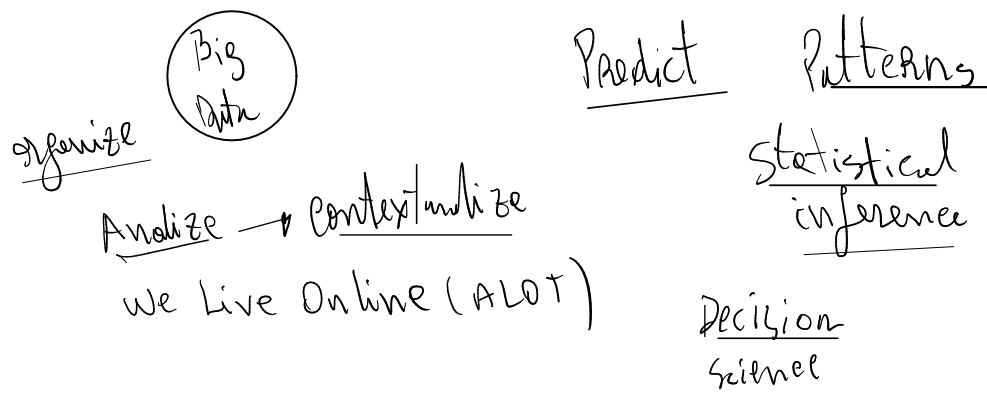 Big
Data
organize
Analize → Contextualize
We Live Online (ALOT)
Predict
Patterns
Statistical
inference
Decision
science